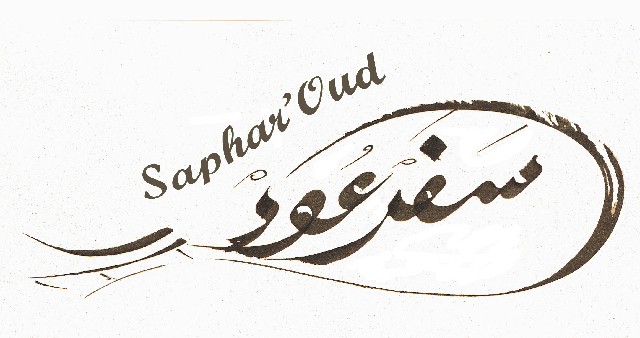 Saphar'Oud
سفر عود